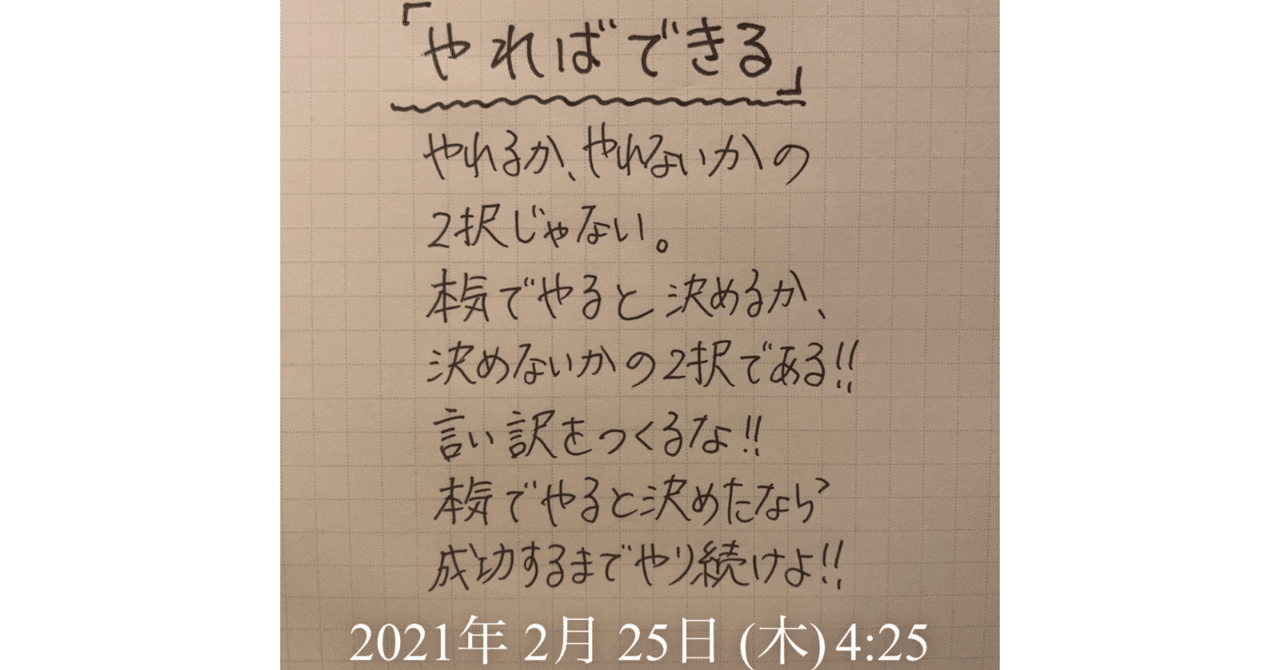 「やればできる」
やれるか、やれないかの
2択じゃない。
本気でやると決めるか、
決めないかの2択である!!
言い訳をつくるな!!
本気でやると決めたなら
成功するまでやり続けよ!!
2021年 2月 25日 (木) 4:25